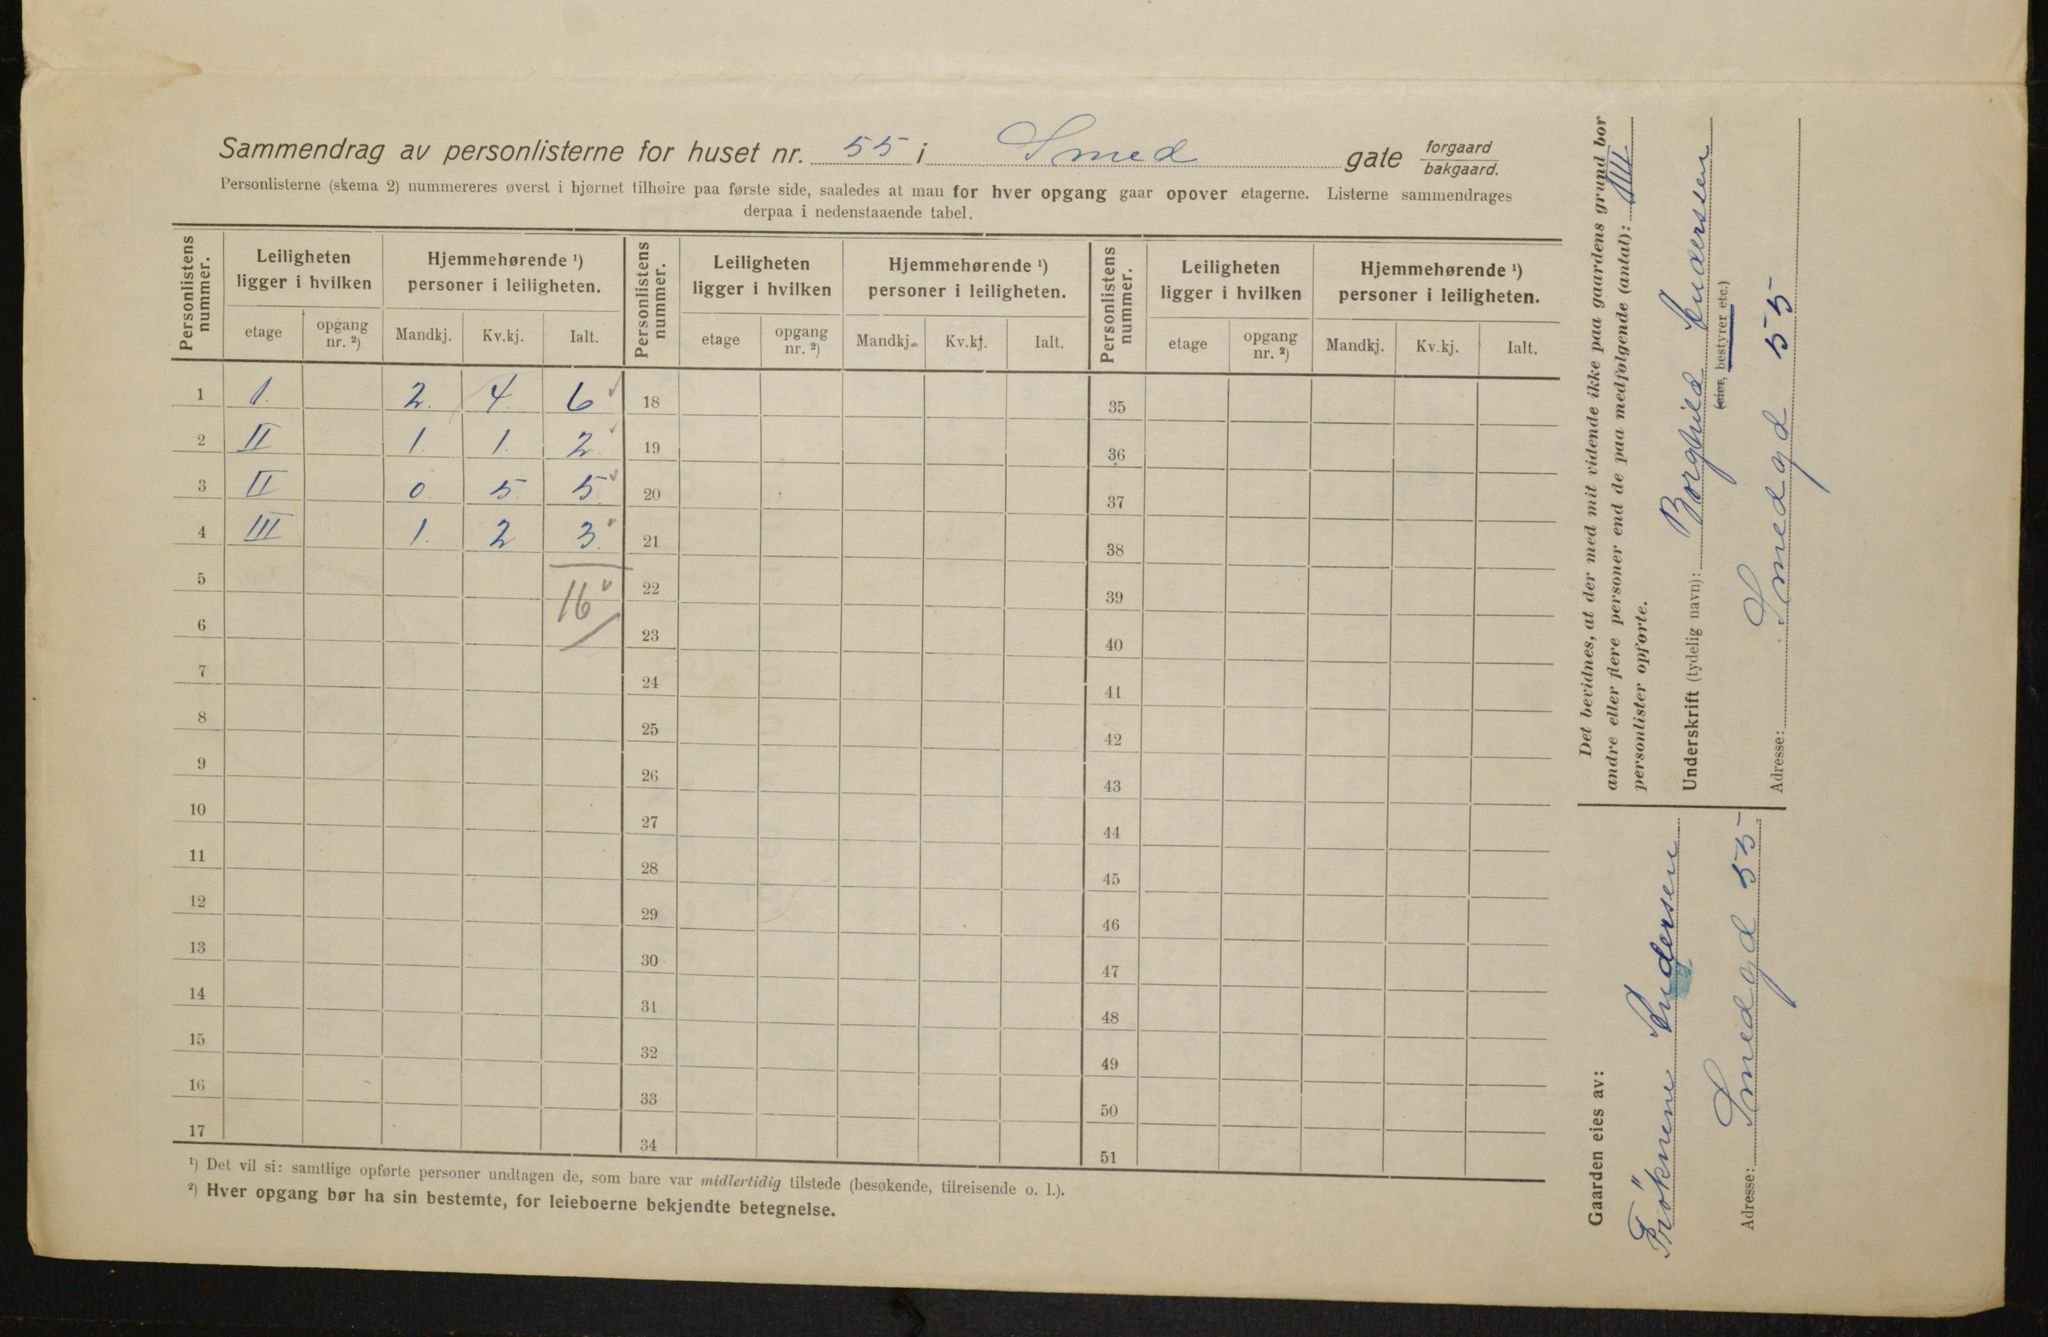 Sammendrag av personlisterne for huset nr. 55 i Smed gate forgaard / bakgaard.
Personlisterne (skema 2) nummereres øverst i hjørnet tilhøire paa første side, saaledes at man for hver opgang gaar opover etagerne. Listerne sammendrages
derpaa i nedenstaaende tabel.
Personlistens nummer. Leiligheten ligger i hvilken Hjemmehørende ¹) personer i leiligheten. Personlistens nummer. Leiligheten ligger i hvilken Hjemmehørende ¹) personer i leiligheten. Personlistens nummer. Leiligheten ligger i hvilken Hjemmehørende ¹) personer i leiligheten.
etage opgang nr. ²) Mandkj. Kv.kj. Ialt. etage opgang nr. ²) Mandkj. Kv.kj. Ialt. etage opgang nr. ²) Mandkj. Kv.kj. Ialt.
1 1. 2. 4. 6 18 35
2 II 1. 1. 2. 19 36
3 II 0. 5. 5. 20 37
4 III 1. 2 3. 21 38
5 16 22 39
6 23 40
7 24 41
8 25 42
9 26 43
10 27 44
11 28 45
12 29 46
13 30 47
14 31 48
15 32 49
16 33 50
17 34 51
¹) Det vil si: samtlige opførte personer undtagen de, som bare var midlertidig tilstede (besøkende, tilreisende o. l.).
²) Hver opgang bør ha sin bestemte, for leieboerne bekjendte betegnelse.
Det bevidnes, at der med mit vidende ikke paa gaardens grund bor
andre eller flere personer end de paa medfølgende (antal): III
personlister opførte.
Underskrift (tydelig navn): Borghild Andersen
(eier, bestyrer etc.)
Adresse: Smedgd 55
Gaarden eies av:
Frøknene Andersen
Adresse: Smedgd 55